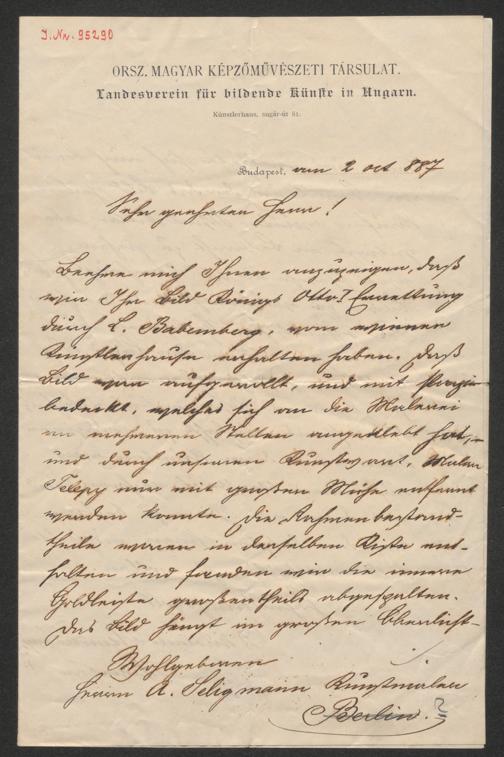 J. Nr. 95290
ORSZ. MAGYAR KÉPZŐMŰVÉSZETI TÁRSULAT.
Landesverein für bildende Künste in Ungarn.
Künstlerhaus, sugár-út 81.
Budapest, am 2 oct 887
Sehr geehrter Herr!
Beehre mich Ihnen anzuzeigen, daß
wir Ihr Bild Königs Otto I Errettung
durch L. Babemberg, vom wiener
Künstlerhause erhalten haben. Daß
Bild war aufgerollt, und mit Papier
bedeckt, welches sich an die Malerei
an mehreren Stellen angeklebt hat,
und durch unseren Kunstwart, Maler
Telepy nur mit großer Mühe entfernt
werden konnte. Die Rahmenbestand-
theile waren in derselben Kiste ent-
halten und fanden wir die innere
Goldleiste großentheils abgespalten.
Das Bild hängt im großen Oberlicht-
Wohlgeboren
Herrn A. Seligmann Kunstmaler
Berlin.